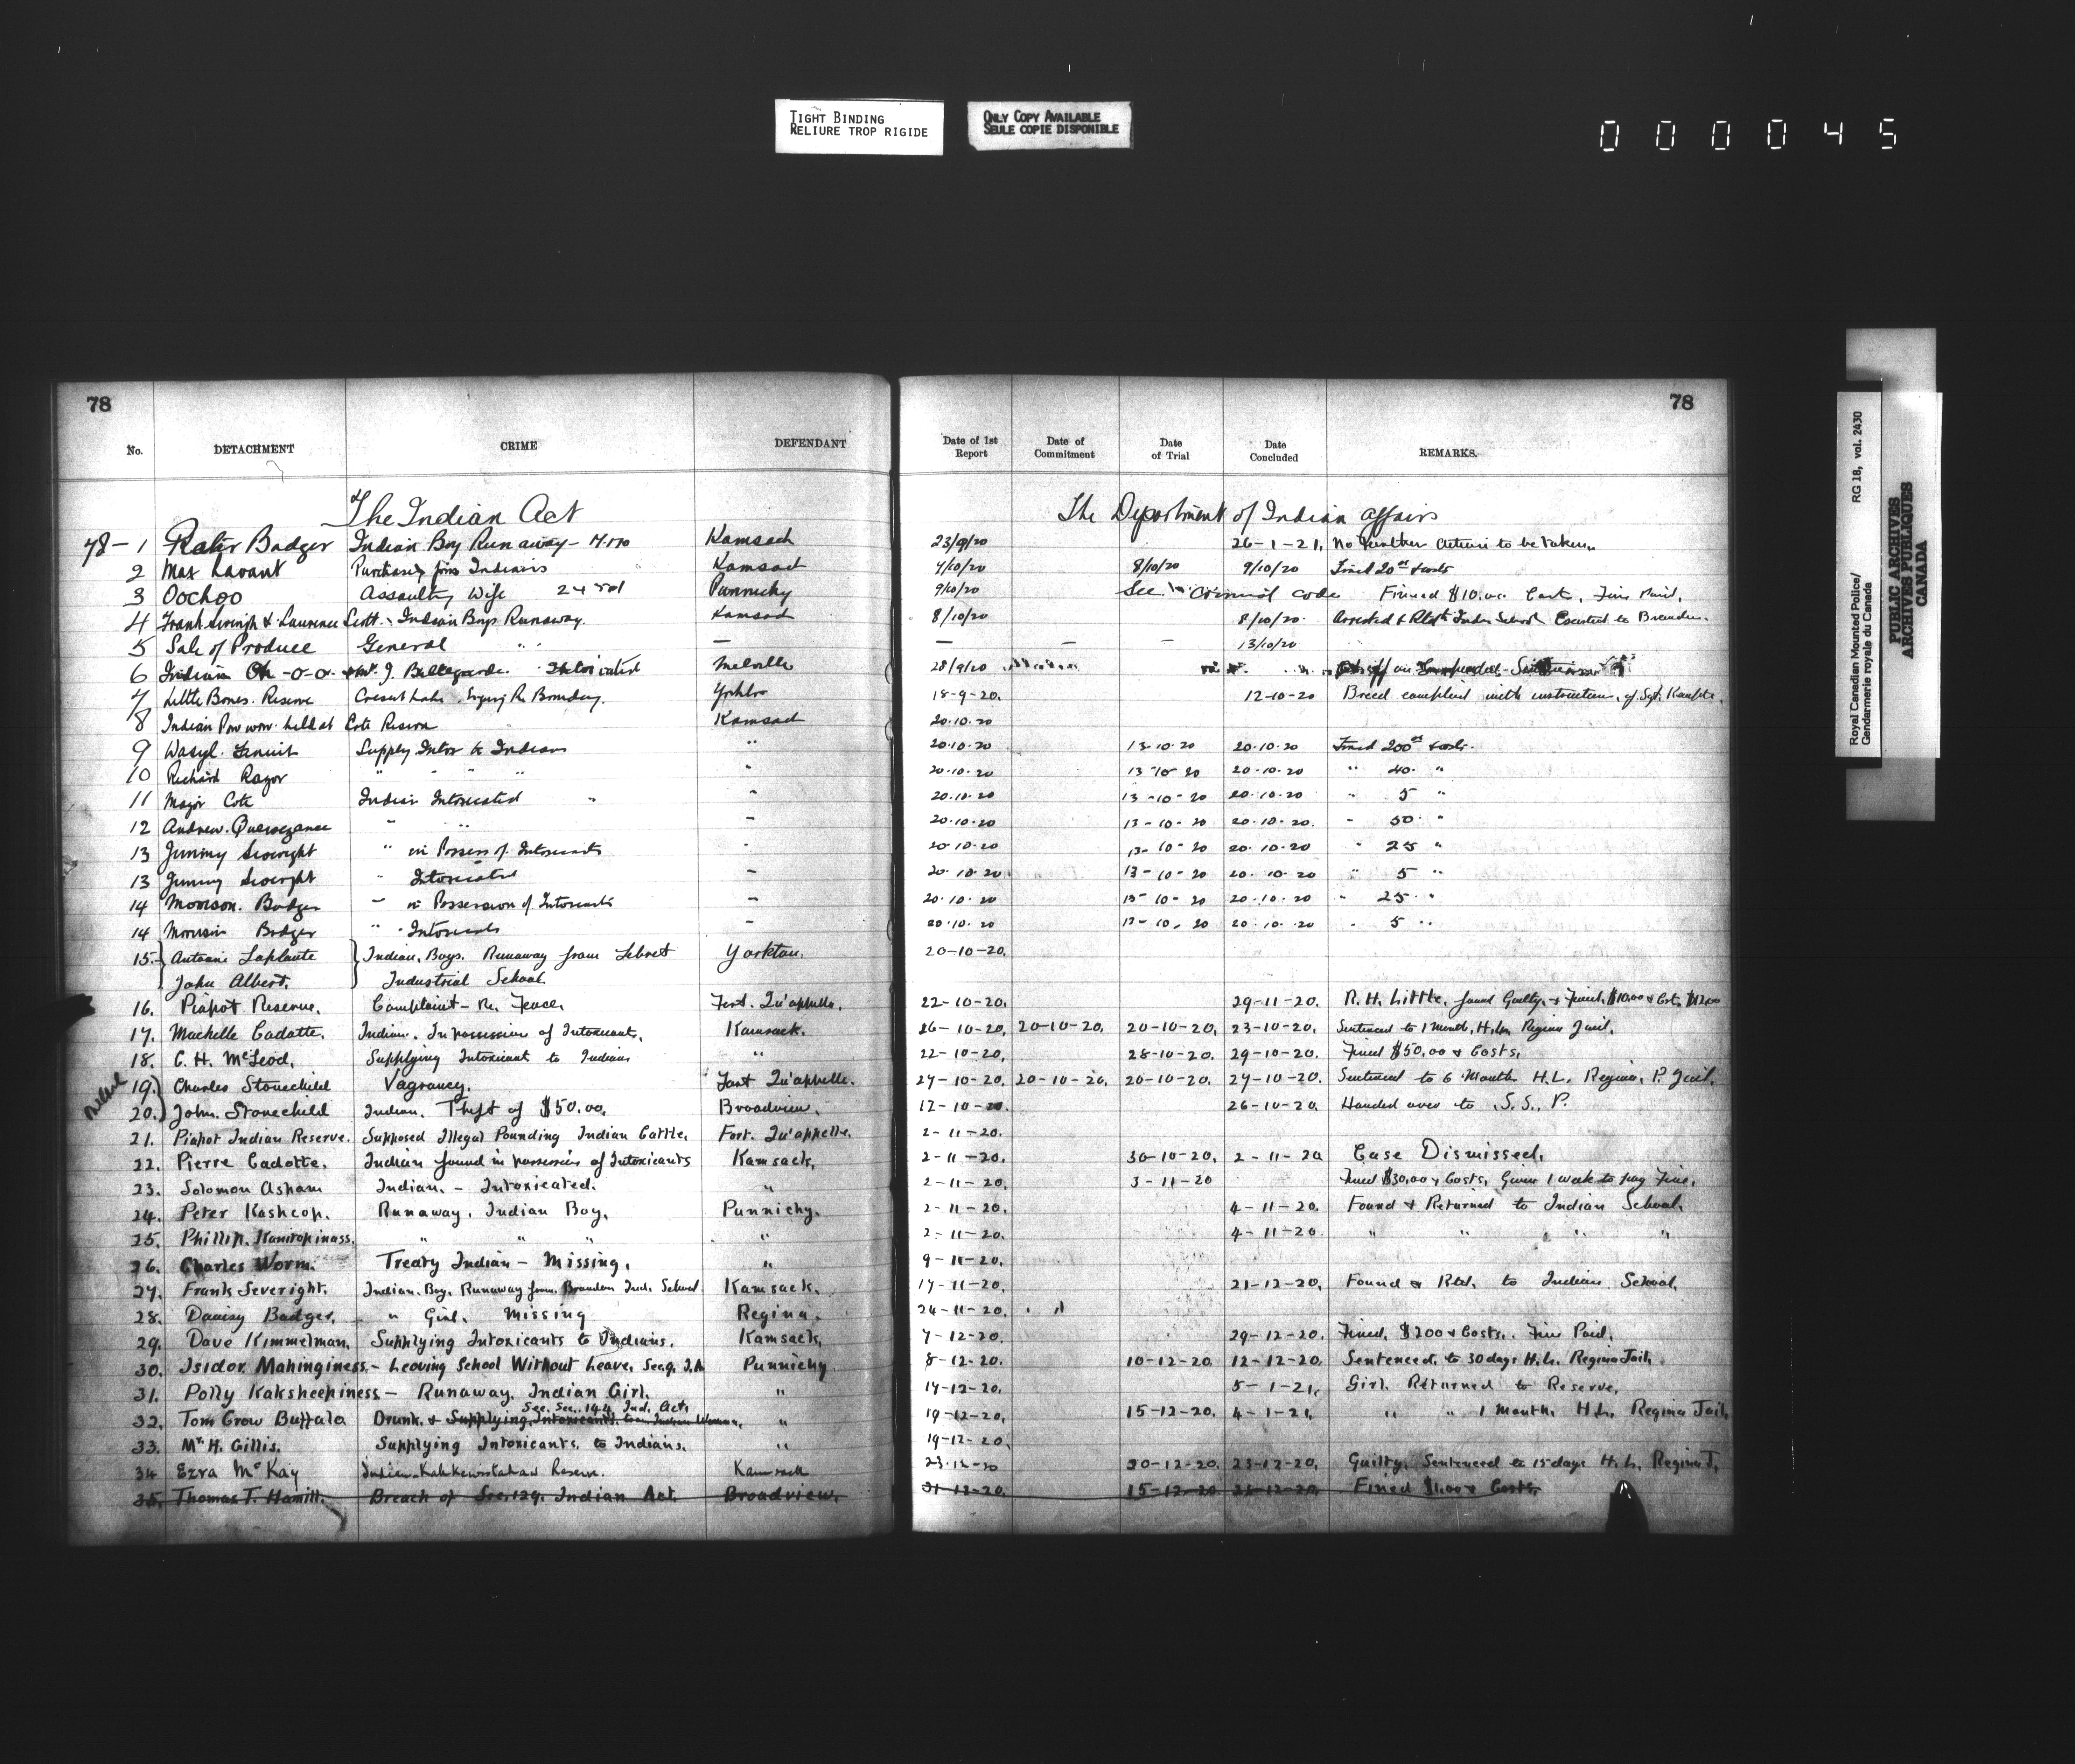 TIGHT BINDING
RELIURE TROP RIGIDE
ONLY COPY AVAILABLE
SEULE COPIE DISPONIBLE
000045
78 78
No. DETACHMENT CRIME DEFENDANT Date of 1st Report Date of Commitment Date of Trial Date Concluded REMARKS.
The Indian Act The Department of Indian Affairs
78-1 Badger Indian Boy Runaway- Kamsack 23/9/20 26-1-21, No further action to be taken.
2 Max Indians Kamsack 4/10/20 8/10/20 9/10/20 Fined 20 & costs
3 Oochoo Assaulting Wife Punnichy 9/10/20 See Criminal Code Fined $10.00 Cost, Fine Paid.
4 Frank & Laurence Scott. Indian Boys Runaway. Kamsack 8/10/20 8/10/20. Arrested & School Escorted to Brandon.
5 Sale of Produce General " " — — — — 13/10/20
6 Indian Oh-o-o- J. Bellegarde. Intoxicated Melville 28/9/20
7 Little Bones. Reserve Crescent Lake. Boundary. 18-9-20. 12-10-20 Breed complied with instructions, of Sgt.
8 Indian Pow wow held at Cote Reserve " Kamsack 20.10.20
9 Wasyl. Supply Intox to Indians " 20.10.20 13-10-20 20.10.20 Fined 200 & costs.
10 Richard Razor " " " " " 20.10.20 13-10-20 20.10.20 " 40. "
11 Major Cote Indian Intoxicated " " 20.10.20 13-10-20 20.10.20 " 5 "
12 Andrew. Quewezance " " " 20.10.20 13-10-20 20.10.20. " 50. "
13 Jimmy " in Possess of. Intoxicants " 20.10.20 13-10-20 20.10.20 " 25 "
13 Jimmy " Intoxicated " 20.10.20 13-10-20 20.10.20 " 5 "
14 Morrison. Badger " in Possession of Intoxicants " 20.10.20 13-10-20 20.10.20 " 25. "
14 Morrison Badger " Intoxicated " 20.10.20 13-10-20 20.10.20 " 5 "
15. Antoine Laplante Indian. Boys. Runaway from Lebret Yorkton. 20-10-20.
John Albert. Industrial School.
16. Piapot Reserve. Complaint- Re. Fence. Fort. Qu'appelle. 22-10-20. 29-11-20. R. H. Little. found Guilty. & Fined. $10.00 & Cost.
17. Machelle Cadotte. Indian. In possession of Intoxicant. Kamsack. 26-10-20. 20-10-20. 20-10-20. 23-10-20. Sentenced to 1 Month. H.L. Regina Jail.
18. C. H. McLeod. Supplying Intoxicant to Indians " 22-10-20. 28-10-20. 29-10-20. Fined $50.00 & Costs.
19. Charles Stonechild Vagrancy. Fort Qu'appelle. 27-10-20. 20-10-20. 20-10-20. 27-10-20. Sentenced to 6 Months H.L. Regina. P. Jail.
20. John. Stonechild Indian. Theft of $50.00. Broadview. 12-10-20. 26-10-20. Handed over to .S.S. P.
21. Piapot Indian Reserve. Supposed Illegal Pounding Indian Cattle. Fort. Qu'appelle. 2-11-20.
22. Pierre Cadotte. Indian found in possession of Intoxicants Kamsack. 2-11-20. 30-10-20. 2-11-20 Case Dismissed.
23. Solomon Asham Indian. - Intoxicated. " 2-11-20. 3-11-20 Fined $30.00 & Costs. Given 1 week to pay Fine.
24. Peter Kashcop. Runaway. Indian Boy. Punnichy. 2-11-20. 4-11-20. Found & Returned to Indian School.
25. Phillip. Kanropinass. " " " " 2-11-20. 4-11-20 " " " "
26. Charles Worm. Treaty Indian - Missing. " 9-11-20.
27. Frank Severight. Indian. Boy. Runaway from Brandon Ind. School Kamsack. 17-11-20. 21-12-20. Found & Rtd. to Indian School.
28. Badger. " Girl. Missing Regina. 24-11-20.
29. Dave Kimmelman. Supplying Intoxicants to Indians. Kamsack. 7-12-20. 29-12-20. Fined. $200 & Costs. Fine Paid.
30. Isidor Mahinginess.- Leaving School Without Leave. Sec.9. I.A Punnichy 8-12-20. 10-12-20. 12-12-20. Sentenced. to 30 days H.L. Regina Jail.
31. Polly Kaksheepiness - Runaway. Indian Girl. " 14-12-20. 5-1-21. Girl. Returned to Reserve.
See. Sec. 144 Ind. Act.
32. Tom Crow Buffalo Drunk. & Supplying Intoxicants. Indian Woman. " 19-12-20. 15-12-20. 4-1-21. " " 1 Month. H.L. Regina Jail.
33. Mr. H. Gillis. Supplying Intoxicants. to Indians. " 19-12-20.
34 Ezra McKay Indian Reserve. Kamsack 23-12-20 20-12-20. 23-12-20. Guilty. Sentenced to 15 days H.L. Regina J.
35. Thomas T. Hamill. Breach of Sec. 129. Indian Act. Broadview. 21-12-20. 15-12-20 Fined $1.00 & Costs.
Royal Canadian Mounted Police/ RG 18, vol. 2430
Gendarmerie royale du Canada
PUBLIC ARCHIVES
ARCHIVES PUBLIQUES
CANADA